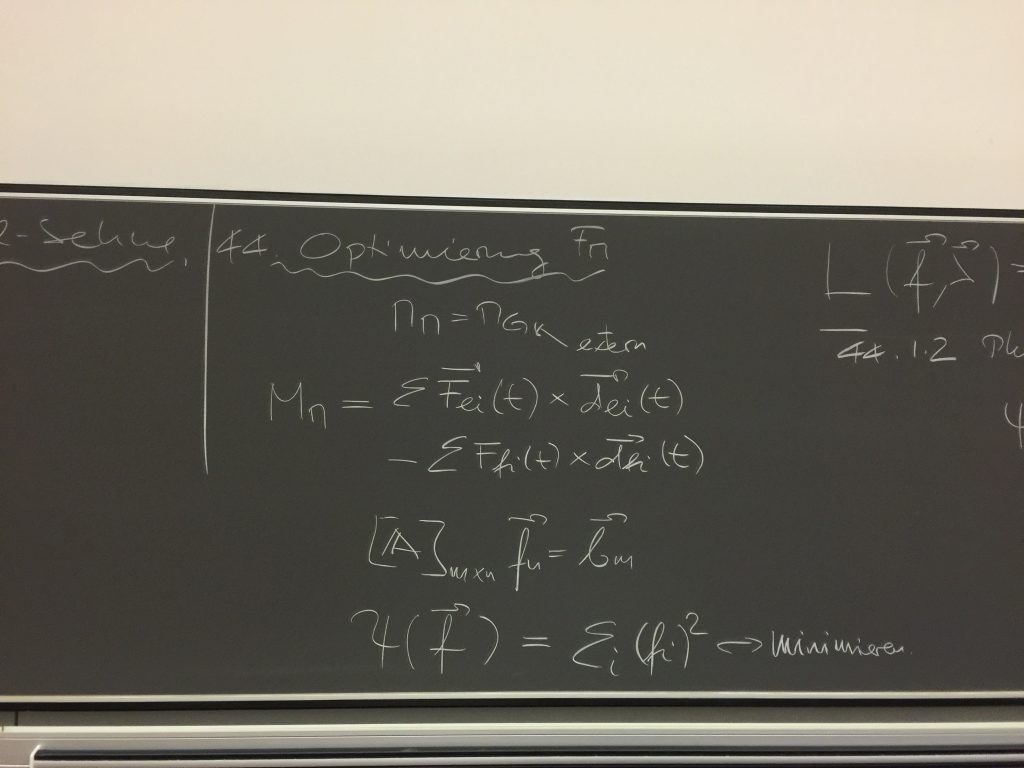 -Sehne.
44. Optimierung Fₙ
Mₙ = M_GK extern
Mₙ = Σ F⃗ei(t) × d⃗ei(t)
− Σ Ffi(t) × d⃗fi(t)
[A]ₘₓₙ f⃗ₙ = b⃗ₘ
Ψ(f⃗) = Σᵢ(fᵢ)² → minimieren
L(f⃗,λ⃗) =
44.1.2
Ψ